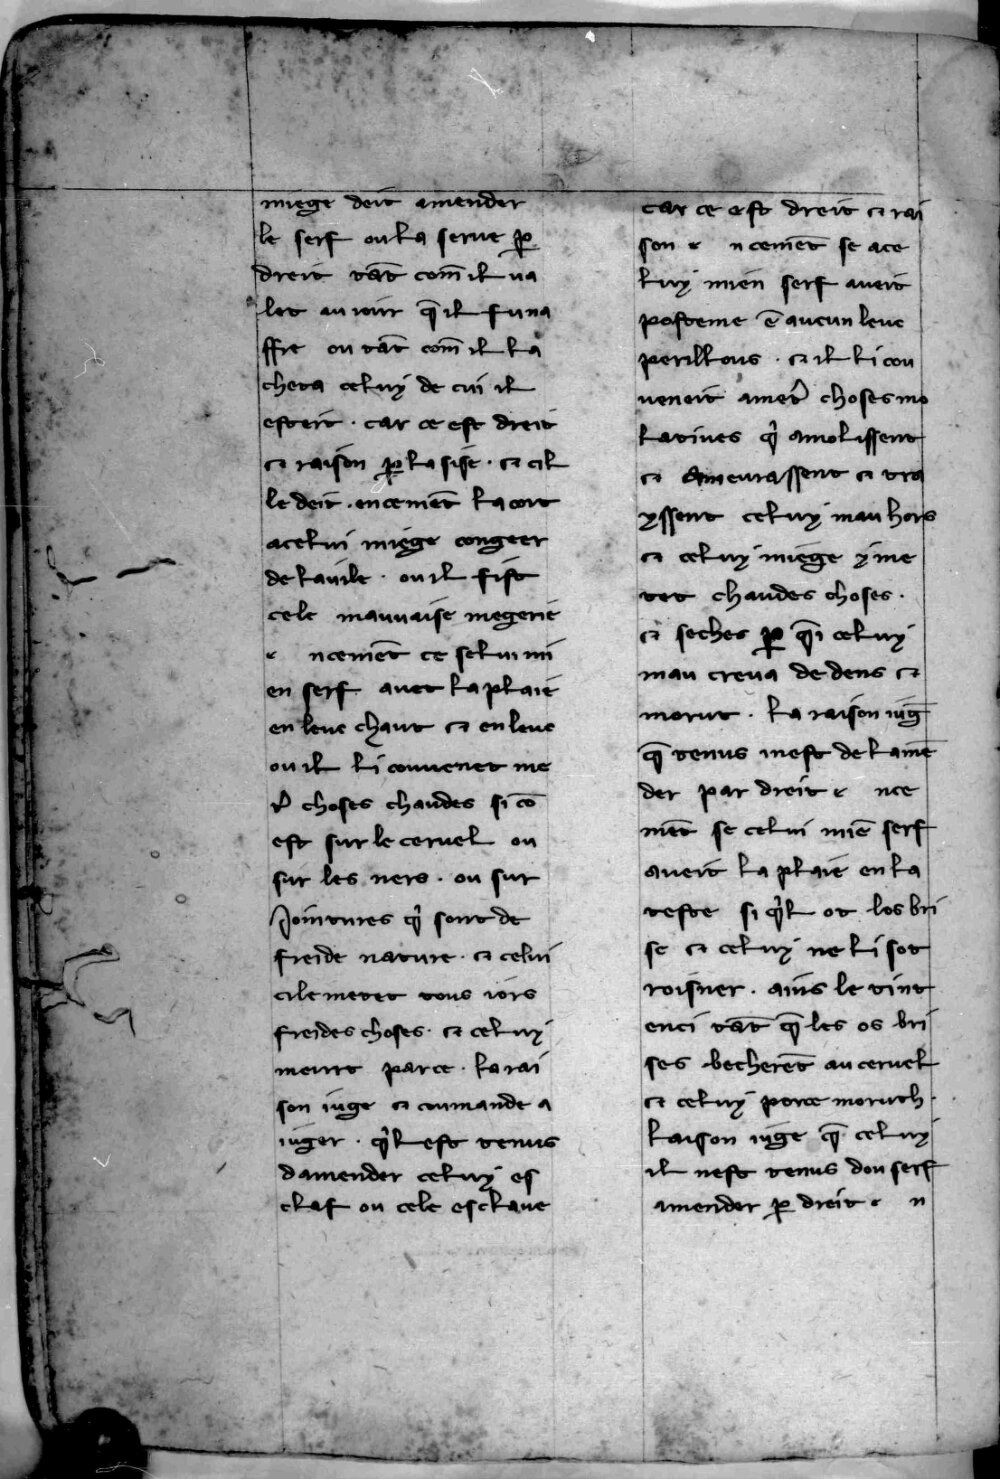 miege deit amender
le serf ou la serue ꝑ
dreit tāt com̄ il ua
let au iour q̄ il fu na
ffre ou tāt com̄ il la
cheta celuy de cui il
esteit · car ce est dreit
⁊ raison ꝑ la sise · ⁊ cil
le deit · encemēt la cort
a celui miege congeer
de lauile · ou il fist
cele mauuaise megerie
e ncemēt ce se lui mi
en serf auet la plaie
en leuc chaut ⁊ en leuc
ou il li couuenet me
t̾ choses chaudes si cō
est sur le ceruel ou
sur les ners · ou sur
Jointures q̾ sont de
freide nature · ⁊ celui
ci le metet tous iors
freides choses · ⁊ celuy
meurt par ce · la rai
son iuge ⁊ coumande a
iuger · q̾l est tenus
damender celuy es
claf ou cele esclaue
car ce est dreit ⁊ rai
son e ncemēt se ace
luy mien serf aueit
posteme ē aucun leuc
perillous · ⁊ il li cou
veneit amet̾ choses mo
latiues q̾ amolissent
⁊ ameurassent ⁊ tra
yssent celuy mau hors
⁊ celuy miege y me
tet chaudes choses ·
⁊ seches ꝑ q̄i celuy
mau creua dedens ⁊
morut · la raison iuḡ
q̄ tenus mest de lamē
der par dreit e nce
mēt se celui miē serf
aueit la plaie en la
teste si q̾l ot los bri
se ⁊ celuy ne li sot
roisner · ains le tint
enci tāt q̄ les os bri
ses becherēt au ceruel
⁊ celuy porce moruth ·
laison iuge q̄ celuy
il nest tenus dou serf
amender ꝑ dreit e n